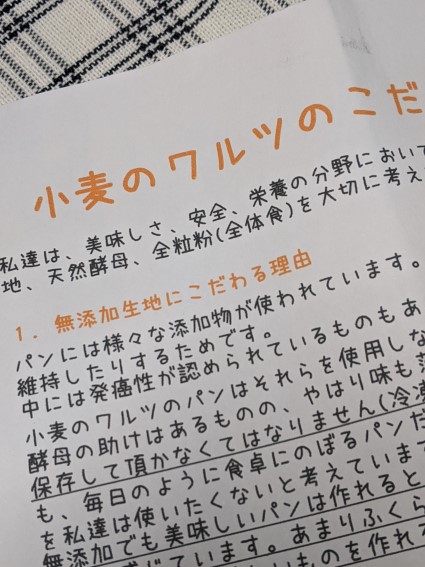 小麦のワルツのこだ
私達は、美味しさ、安全、栄養の分野において
地、天然酵母、全粒粉(全体食)を大切に考え
1. 無添加生地にこだわる理由
パンには様々な添加物が使われています。
維持したりするためです。
中には発癌性が認められているものもあ
小麦のワルツのパンはそれらを使用しな
酵母の助けはあるものの、やはり味も落
保存して頂かなくてはなりません(冷凍
も、毎日のように食卓にのぼるパンだ
を私達は使いたくないと考えていま
無添加でも美味しいパンは作れると
じています。あまりふくら
いものを作れる